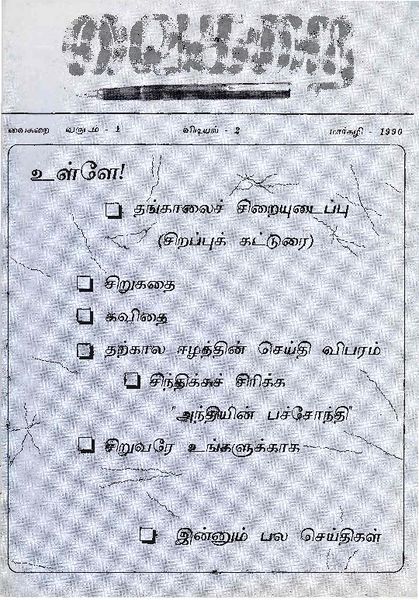 வைகறை
வைகறை வருடம் - 1 விடியல் - 2 மார்கழி - 1990
உள்ளே!
தங்காலைச் சிறையுடைப்பு
(சிறப்புக் கட்டுரை)
சிறுகதை
கவிதை
தற்கால ஈழத்தின் செய்தி விபரம்
சிந்திக்கச் சிரிக்க
"அந்தியின் பச்சோந்தி"
சிறுவரே உங்களுக்காக
இன்னும் பல செய்திகள்